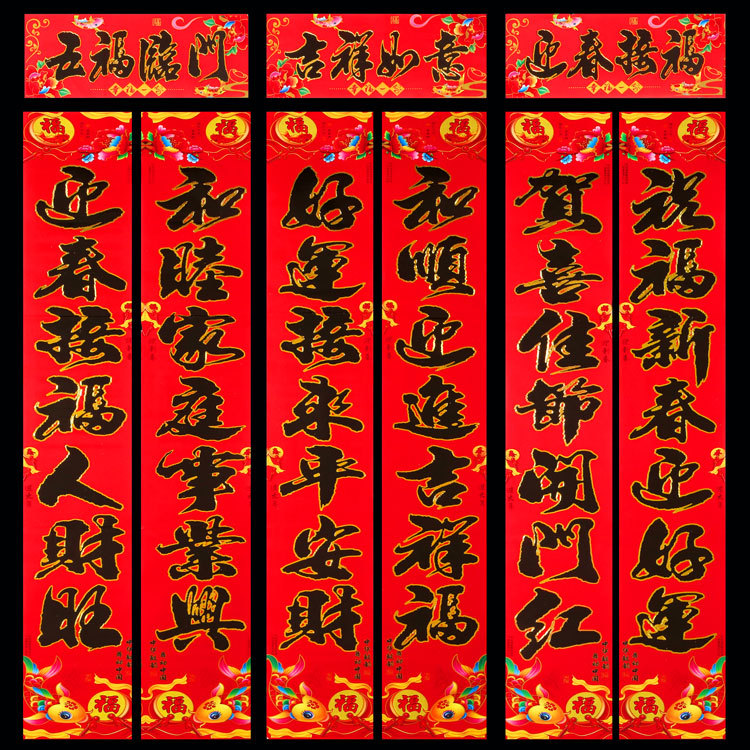 五福臨門
吉祥如意
迎春接福
福
迎春接福人財旺
福
福
和睦家庭事業興
福
福
好運接來平安財
福
福
和順迎進吉祥福
福
福
賀喜佳節開門紅
福
福
祝福新春迎好運
福